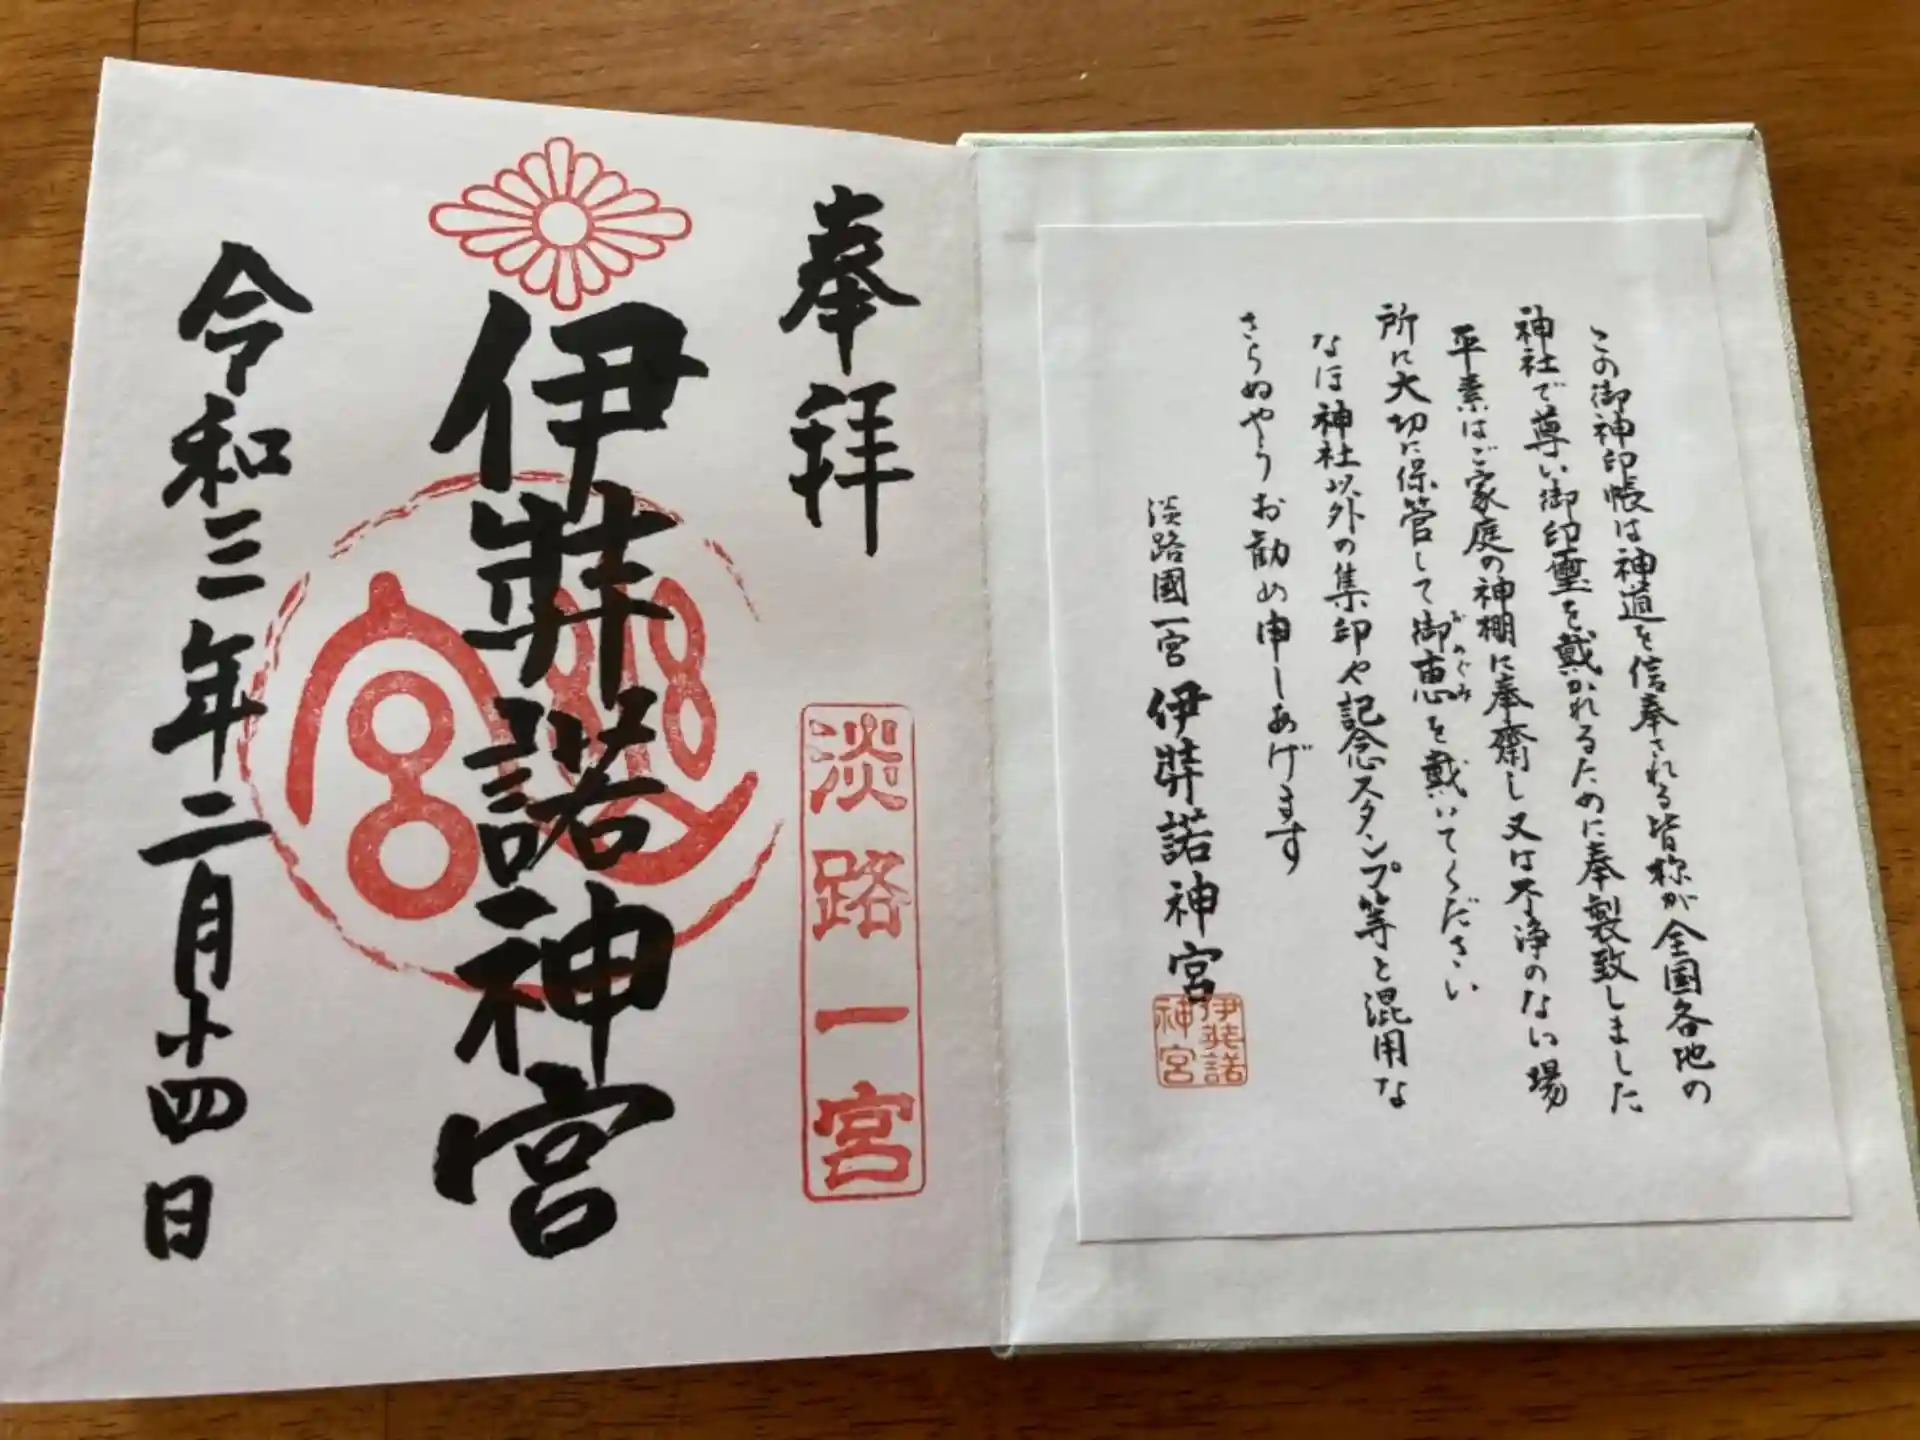 この御神印帳は神道を信奉される皆様が全国各地の
神社で尊い御印璽を戴かれるために奉製致しました
平素はご家庭の神棚に奉齋し又は不浄のない場
所に大切に保管して御恵を戴いてください
おめぐみ
なほ神社以外の集印や記念スタンプ等と混用な
さらぬやうお勧め申しあげます
淡路國一宮 伊弉諾神宮
伊弉諾
神宮
奉拝
淡路一宮
伊弉諾神宮
令和三年二月十四日